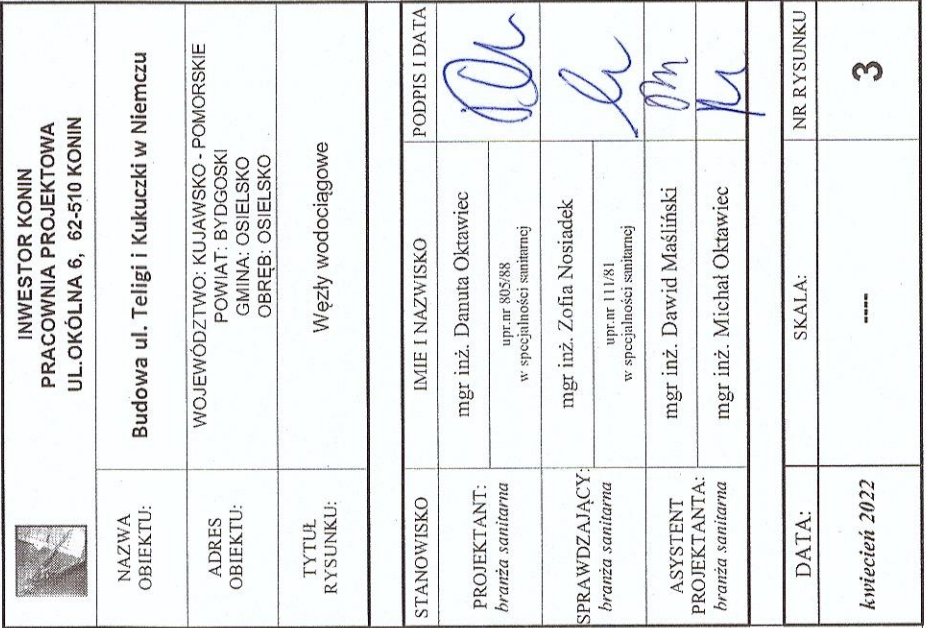 INWESTOR KONIN
PRACOWNIA PROJEKTOWA
UL.OKÓLNA 6, 62-510 KONIN
NAZWA
OBIEKTU:
Budowa ul. Teligi i Kukuczki w Niemczu
ADRES
OBIEKTU:
WOJEWÓDZTWO: KUJAWSKO - POMORSKIE
POWIAT: BYDGOSKI
GMINA: OSIELSKO
OBRĘB: OSIELSKO
TYTUŁ
RYSUNKU:
Węzły wodociągowe
STANOWISKO
IMIE I NAZWISKO
PODPIS I DATA
PROJEKTANT:
branża sanitarna
mgr inż. Danuta Oktawiec
upr.nr 805/88
w specjalności sanitarnej
SPRAWDZAJĄCY:
branża sanitarna
mgr inż. Zofia Nosiadek
upr.nr 111/81
w specjalności sanitarnej
ASYSTENT
PROJEKTANTA:
branża sanitarna
mgr inż. Dawid Maśliński
mgr inż. Michał Oktawiec
DATA:
SKALA:
NR RYSUNKU
kwiecień 2022
----
3